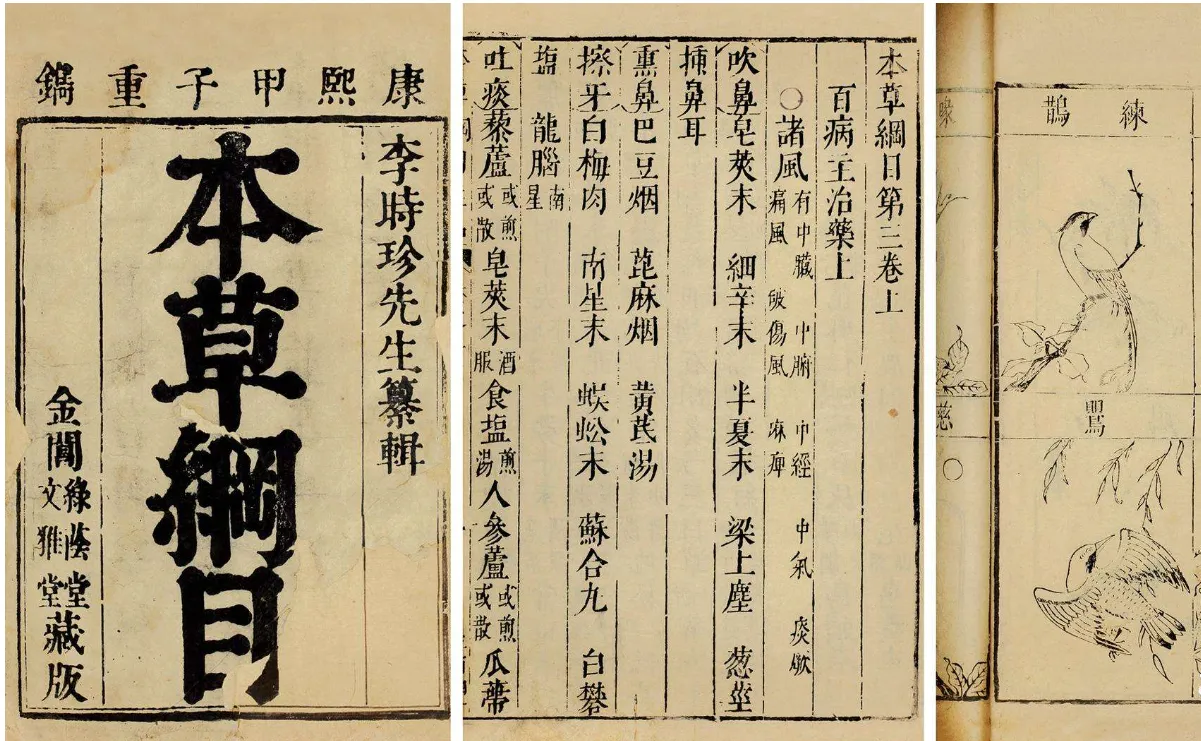 康熙甲子重鐫
李時珍先生纂輯
本草綱目
金閶綠蔭堂文雅堂藏版
本草綱目第三卷上
百病主治藥上
○諸風 有中臟 中腑 中經 中氣 痰厥
痛風 破傷風 麻痺
吹鼻皂莢末 細辛末 半夏末 梁上塵 葱莖
插鼻耳
熏鼻巴豆烟 蓖麻烟 黃芪湯
擦牙白梅肉 南星末 蜈蚣末 蘇合丸 白礬
塩 龍腦南星
吐痰藜蘆或煎或散 皂莢末酒服 食塩煎湯 人參蘆或煎或散 瓜蔕
練鵲
鸎